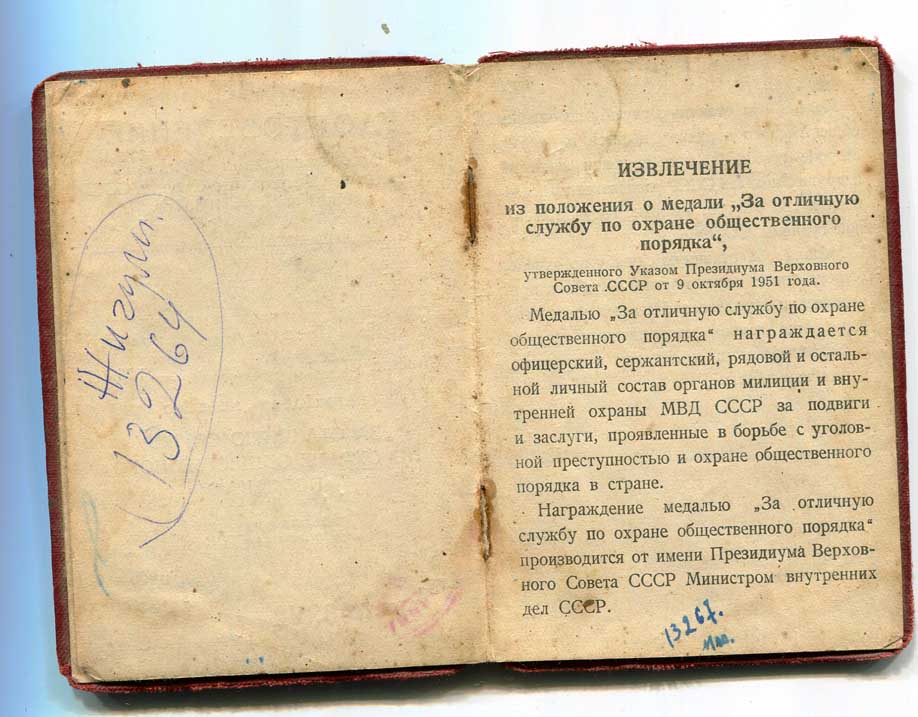 Жигули.
13264
ИЗВЛЕЧЕНИЕ
из положения о медали „За отличную
службу по охране общественного
порядка“,
утвержденного Указом Президиума Верховного
Совета СССР от 9 октября 1951 года.
Медалью „За отличную службу по охране
общественного порядка“ награждается
офицерский, сержантский, рядовой и осталь-
ной личный состав органов милиции и вну-
тренней охраны МВД СССР за подвиги
и заслуги, проявленные в борьбе с уголов-
ной преступностью и охране общественного
порядка в стране.
Награждение медалью „За отличную
службу по охране общественного порядка“
производится от имени Президиума Верхов-
ного Совета СССР Министром внутренних
дел СССР.
13267.